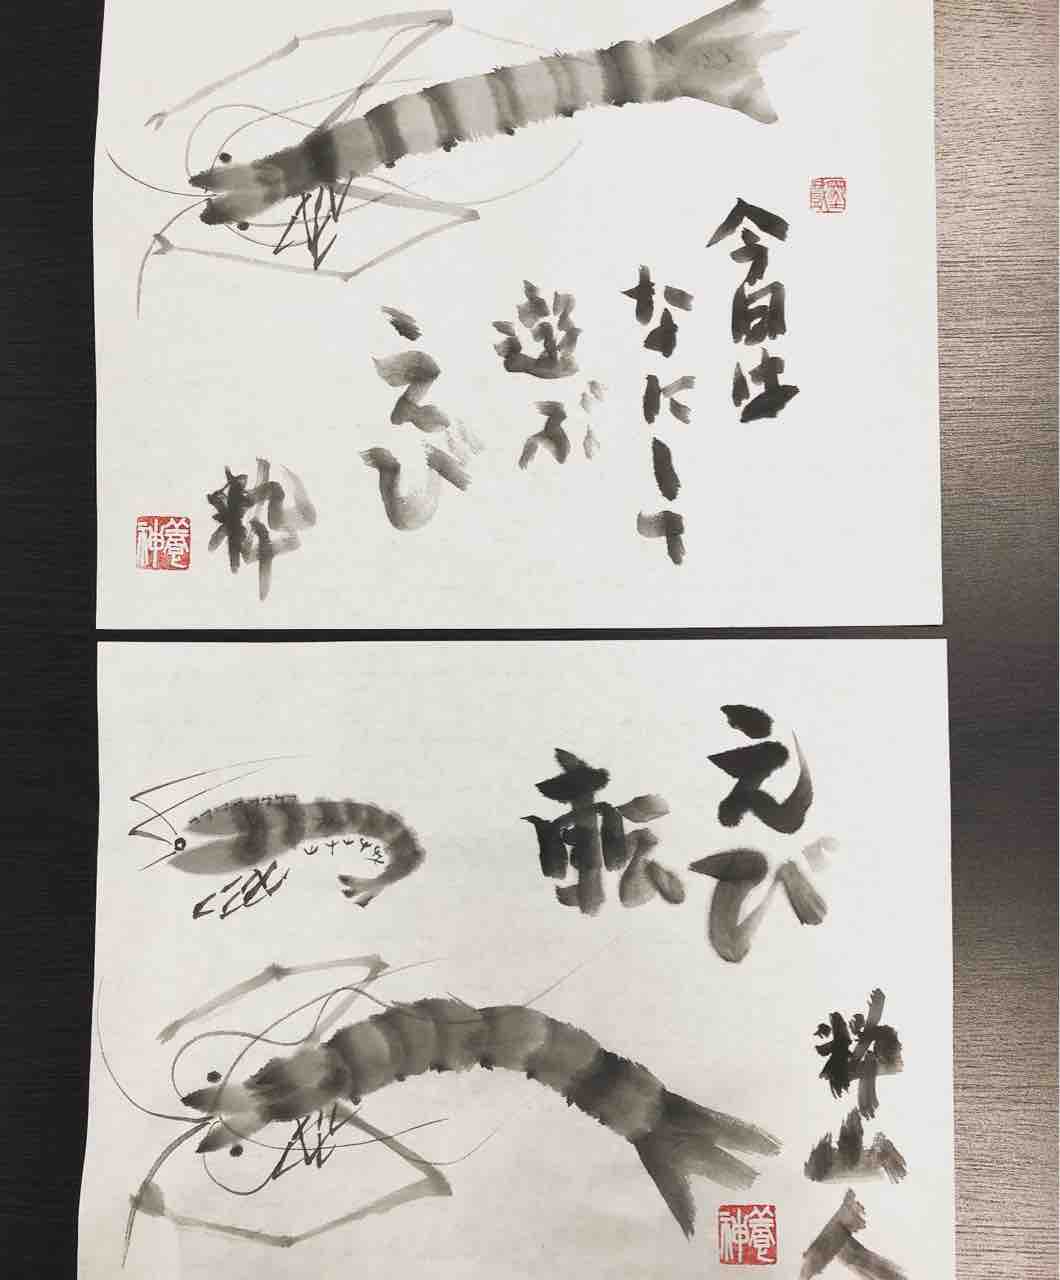 今日は
なにして
遊ぶ
えび
粋
養神
えび
粋山人
養神